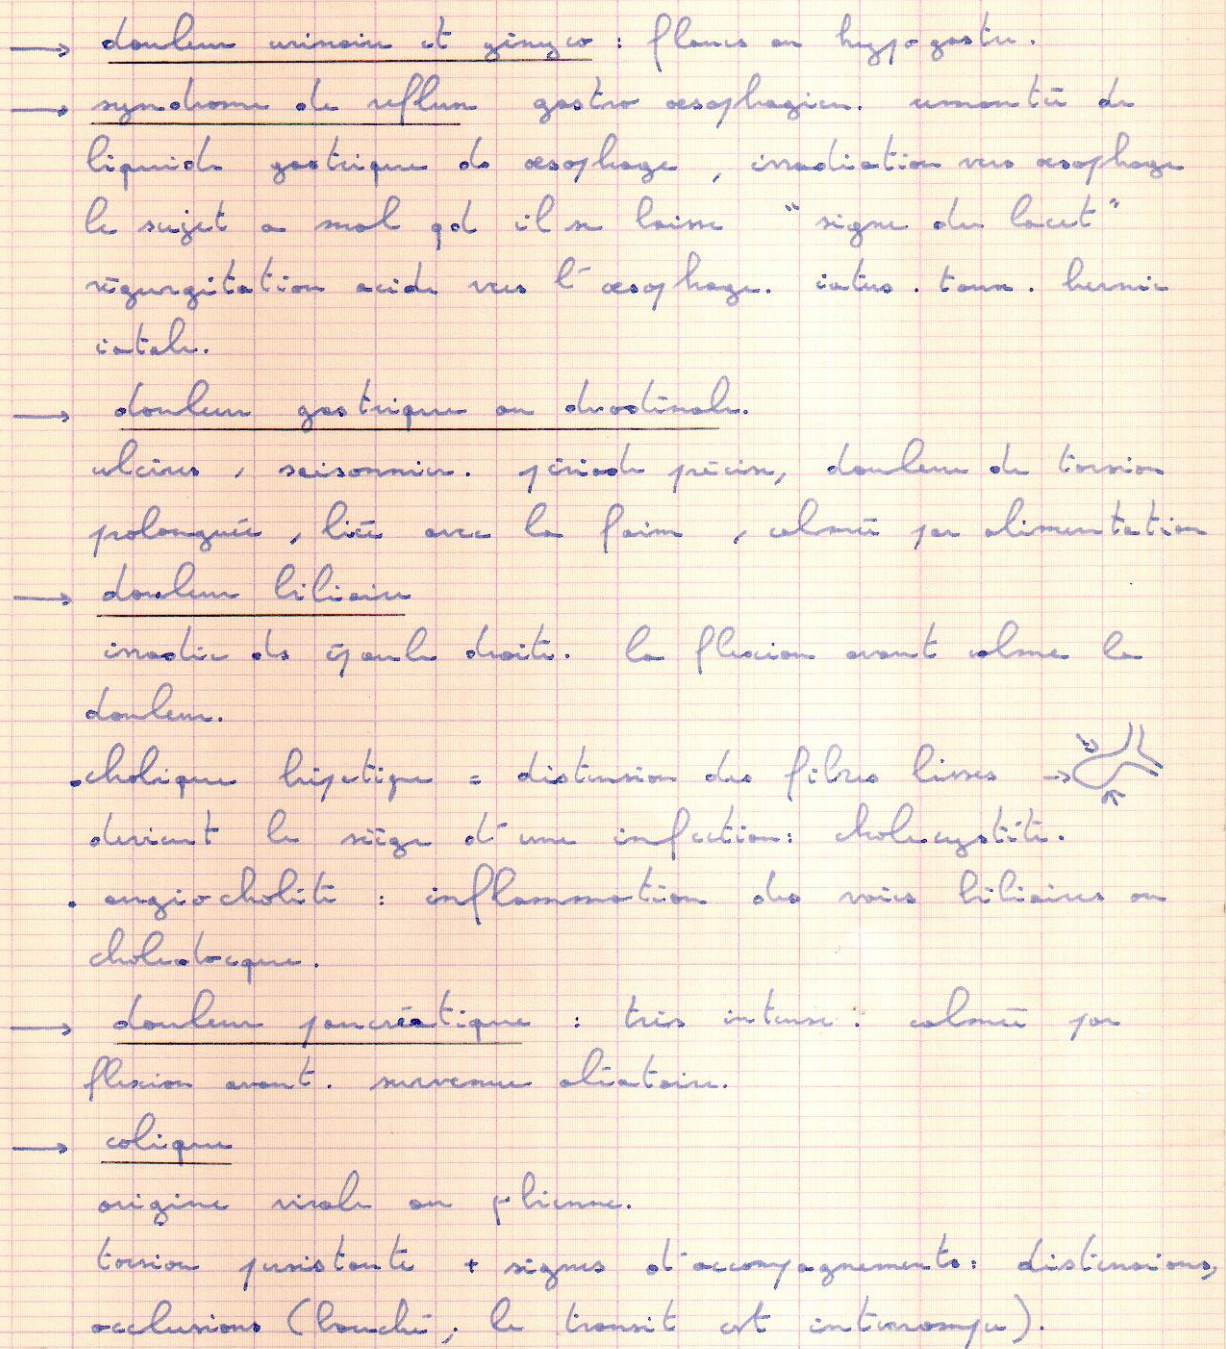 → douleur urinaire et gynéco : flancs ou hypogastre.
→ syndrome de reflux gastro œsophagien. remontée de
liquide gastrique ds œsophage, irradiation vers œsophage
le sujet a mal qd il se baisse "signe du lacet"
régurgitation acide vers l'œsophage. iatus. toux. hernie
iatale.
→ douleur gastrique ou duodénale.
ulcères, saisonnier. période précise, douleur de torsion
prolonguée, liée avec la faim, calmée par alimentation
→ douleur biliaire
irradie ds épaule droite. la flexion avant calme la
douleur.
. cholique hépatique = distension des fibres lisses →
devient le siège d'une infection: cholecystite.
. angiocholite : inflammation des voies biliaires ou
choledocque.
→ douleur pancréatique : très intense : calmée par
flexion avant. survenue aléatoire.
→ colique
origine virale ou µbienne.
torsion persistante + signes d'accompagnements: distensions,
occlusions (bouché; le transit est interrompu).